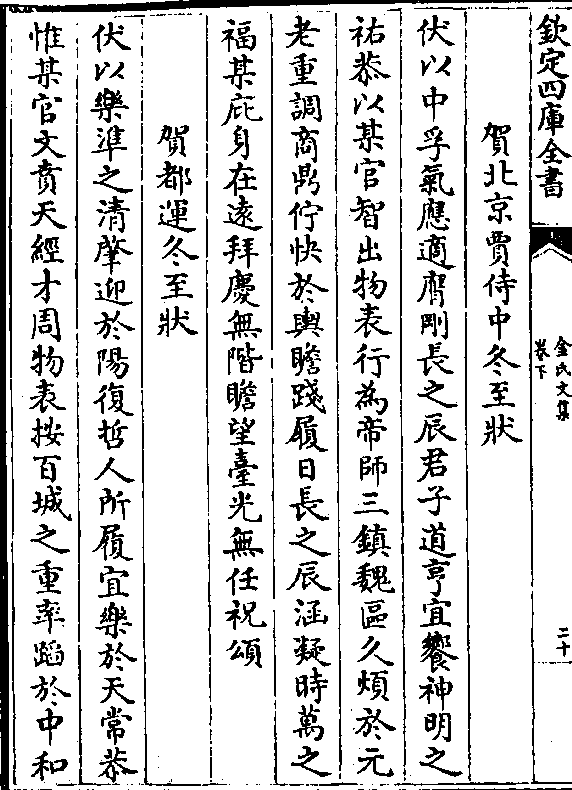 欽定四庫全書
金氏文集
卷下
二十
賀北京賈侍中冬至狀
伏以中孚氣應適膺剛長之辰君子道亨宜饗神明之
祐恭以某官智出物表行為帝師三鎮魏區久煩於元
老重調商鼎佇快於輿瞻踐履日長之辰涵凝時萬之
福某庇身在遠拜慶無階瞻望臺光無任祝頌
賀都運冬至狀
伏以樂準之清肇迎於陽復哲人所履宜樂於天常恭
惟某官文賁天經才周物表按百城之重率蹈於中和